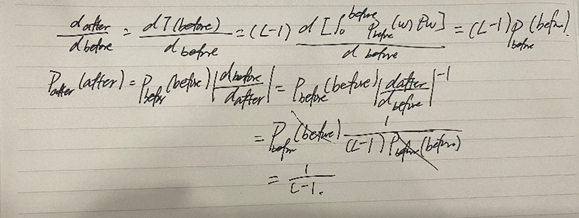 d after / d before = d T(before) / d before = (L-1) d[∫₀^before P_before(w) dw] / d before = (L-1) P_before(before)
P_after(after) = P_before(before) |d before / d after| = P_before(before) |d after / d before|^-1
= P_before(before) 1 / (L-1) P_before(before)
= 1 / L-1.